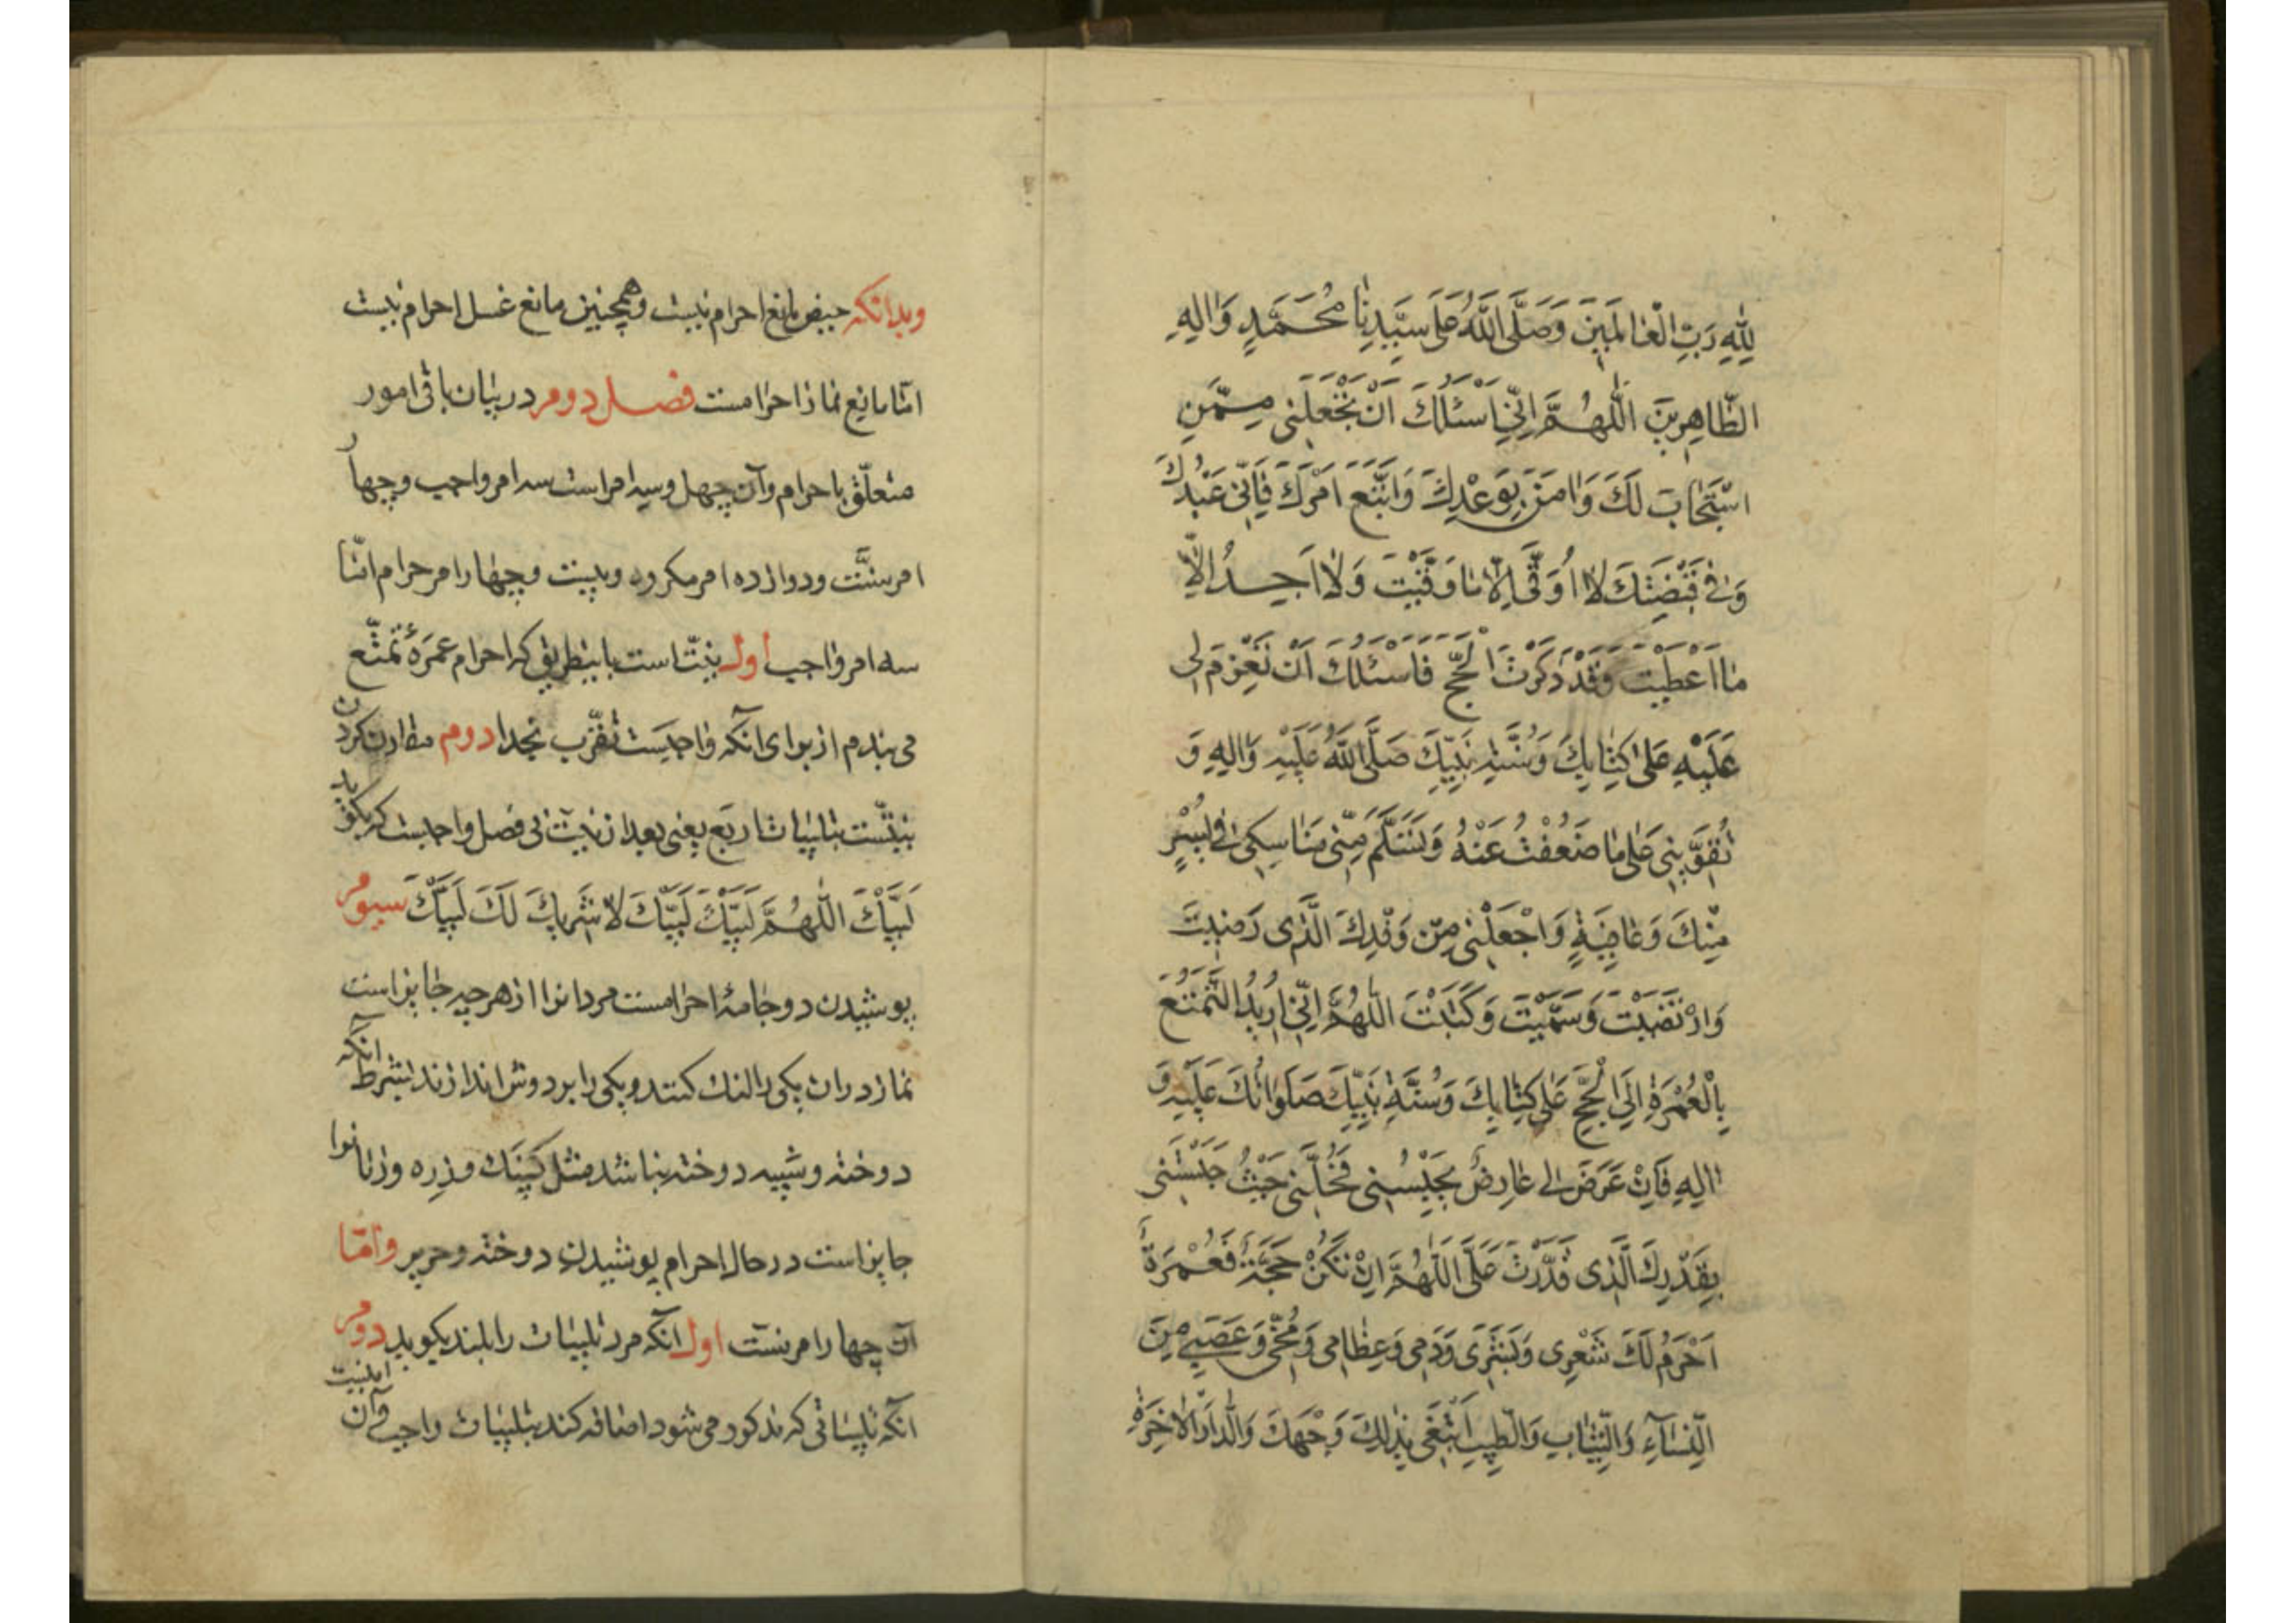 لِلّٰهِ رَبِّ الْعٰالَمِينَ وَصَلَّى اللّٰهُ عَلٰى سَيِّدِنٰا مُحَمَّدٍ وَاٰلِهِ
الطّٰاهِرِينَ اَللّٰهُمَّ اِنِّي اَسْئَلُكَ اَنْ تَجْعَلَنِي مِمَّنِ
اسْتَجٰابَ لَكَ وَاٰمَنَ بِوَعْدِكَ وَاتَّبَعَ اَمْرَكَ فَاِنِّي عَبْدُكَ
وَفِي قَبْضَتِكَ لاٰ اُوقٰى اِلّاٰ مٰا وَقَيْتَ وَلاٰ اَجِدُ اِلّاٰ
مٰا اَعْطَيْتَ وَقَدْ ذَكَرْتَ الْحَجَّ فَاَسْئَلُكَ اَنْ تَعْزِمَ لِي
عَلَيْهِ عَلٰى كِتٰابِكَ وَسُنَّةِ نَبِيِّكَ صَلَّى اللّٰهُ عَلَيْهِ وَاٰلِهِ وَ
تُقَوِّيَنِي عَلٰى مٰا ضَعُفْتُ عَنْهُ وَتَسَلَّمَ مِنِّي مَنٰاسِكِي فِي يُسْرٍ
مِنْكَ وَعٰافِيَةٍ وَاجْعَلْنِي مِنْ وَفْدِكَ الَّذِي رَضِيتَ
وَارْتَضَيْتَ وَسَمَّيْتَ وَكَتَبْتَ اَللّٰهُمَّ اِنِّي اُرِيدُ التَّمَتُّعَ
بِالْعُمْرَةِ اِلَى الْحَجِّ عَلٰى كِتٰابِكَ وَسُنَّةِ نَبِيِّكَ صَلَوٰاتُكَ عَلَيْهِ وَ
اٰلِهِ فَاِنْ عَرَضَ لِي عٰارِضٌ يَحْبِسُنِي فَخَلِّنِي حَيْثُ حَبَسْتَنِي
بِقَدَرِكَ الَّذِي قَدَّرْتَ عَلَيَّ اَللّٰهُمَّ اِنْ لَمْ تَكُنْ حَجَّةً فَعُمْرَةً
اَحْرَمَ لَكَ شَعْرِي وَبَشَرِي وَدَمِي وَعِظٰامِي وَمُخِّي وَعَصَبِي مِنَ
النِّسٰآءِ وَالثِّيٰابِ وَالطِّيبِ اَبْتَغِي بِذٰلِكَ وَجْهَكَ وَالدّٰارَ الْاٰخِرَةَ
وبدانكه حيض مانع احرام نيست وهمچنين مانع غسل احرام نيست
امّا مانع نماز احرامست فصل دوم در بيان باقى امور
متعلّق باحرام وآن چهل وسه امر است سه امر واجب وچهار
امر سنّت ودوازده امر مكروه وبيست وچهار امر حرام امّا
سه امر واجب اول نيّت است باينطريق كه احرام عمرهٔ تمتّع
مى بندم از براى آنكه واجبست تقرّب بخدا دوم مقارن كردن
نيّتست بتلبيات اربع يعنى بعد از نيّت بى فصل واجبست كه بگويد
لَبَّيْكَ اَللّٰهُمَّ لَبَّيْكَ لَبَّيْكَ لاٰ شَرِيكَ لَكَ لَبَّيْكَ سيوم
پوشيدن دو جامهٔ احرامست مردانرا از هر چه جايز است
نماز در ان يكى را لنك كنند ويكى را بر دوش اندازند بشرط آنكه
دوخته وشبيه دوخته نباشد مثل كپنك وزره وزنانرا
جايز است در حال احرام پوشيدن دوخته وحرير وامّا
آن چهار امر سنّت اول آنكه مرد تلبيات را بلند بگويد دوم
آنكه تلبيّاتى كه مذكور مى شود اضافه كند بتلبيات واجب وآن اينست